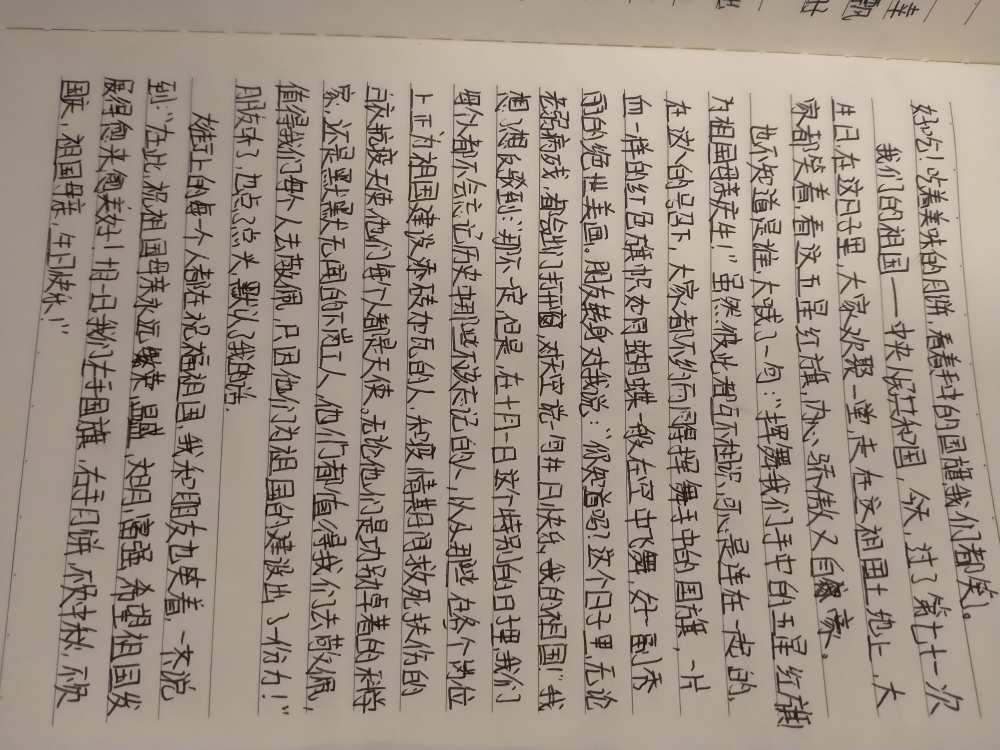 好吃！吃着美味的月饼，看着手中的国旗我们都笑了。
我们的祖国——中华人民共和国，今天，过了第七十一次
生日，在这日子里，大家欢聚一堂，走在这祖国土地上，大
家都笑着，看这五星红旗，内心骄傲又自豪。
也不知道是谁，大喊了一句："挥舞我们手中的五星红旗
为祖国母亲庆生！"虽然彼此都互不相识，可心是连在一起的，
在这人的号召下，大家者都不约而同得挥舞手中的国旗，一片
血一样的红色旗帜如同蝴蝶一般在空中飞舞，好一副秀
丽的绝世美画。朋友转身对我说："你知道吗？这个日子里，无论
老弱病残，都会出门打开窗，对天空说一句生日快乐，我的祖国！"我
想了想反驳到："那不一定，但是，在十月一日这个特别的日子里，我们
每个人都不会忘记历史中那些不该忘记的人，以及那些在各个岗位
上正为祖国建设添砖加瓦的人，和疫情期间救死扶伤的
白衣抗疫天使，他们每个人都是天使，无论他们是功勋卓著的科学
家，还是默默无闻的下岗工人，他们都值得我们去敬佩，
值得我们每个人去敬佩，只因他们为祖国的建设出了一份力！"
朋友听了，也点了点头，默认了我的话。
大街上的每一个人都在祝福祖国，我和朋友也笑着，一来说
到："在此，祝祖国母亲永远繁荣，昌盛，文明，富强，希望祖国发
展得愈来愈美好！十月一日，我们左手国旗，右手月饼，不负中秋，不负
国庆，祖国母亲，生日快乐！"